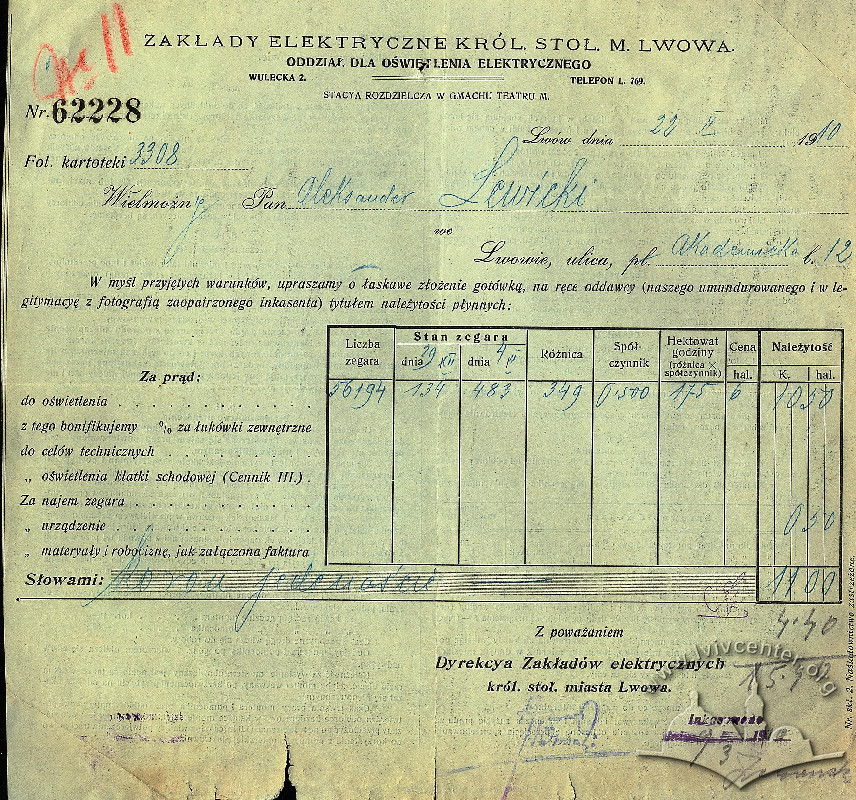 № 11
ZAKŁADY ELEKTRYCZNE KRÓL. STOŁ. M. LWOWA.
ODDZIAŁ DLA OŚWIETLENIA ELEKTRYCZNEGO
WULECKA 2. TELEFON L. 769.
STACYA ROZDZIELCZA W GMACHU TEATRU M.
Nr. 62228
Lwów dnia 22 1910
Fol. kartoteki 3308
Wielmożny Pan Aleksander Lewicki
we
Lwowie, ulica, pl. Akademicka l. 12
W myśl przyjętych warunków, upraszamy o łaskawe złożenie gotówką, na ręce oddawcy (naszego umundurowanego i w le-
gitymacyę z fotografią zaopatrzonego inkasenta) tytułem należytości płynnych:
Liczba zegara Stan zegara dnia 29 XII dnia 4 Różnica Spół-czynnik Hektowat godziny (różnica × spółczynnik) Cena hal. Należytość K. hal.
Za prąd:
do oświetlenia 56194 134 483 349 0·500 175 6 10 50
z tego bonifikujemy % za łukówki zewnętrzne
do celów technicznych
„ oświetlenia klatki schodowej (Cennik III.)
Za najem zegara
„ urządzenie 0 50
„ materyały i robociznę, jak załączona faktura
Słowami: Koron jedenaście 11 00
4·40
15·40
Z poważaniem
Dyrekcya Zakładów elektrycznych
król. stoł. miasta Lwowa.
Inkasowano
Nr. skł. 2. Naśladownictwo zastrzeżone.
www.lvivcenter.org